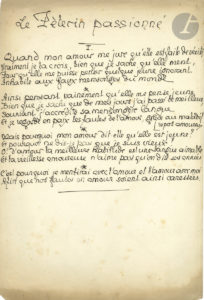 Le Pèlerin passionné
I
Quand mon amour me jure qu'elle est faite de vérité
Vraiment je la crois, bien que je sache qu'elle ment,
qu'elle me puisse penser quelque jeune ignorant
Inhabile aux faux du monde.
Ainsi pensant vainement qu'elle me pense jeune,
Bien que je sache que de mes jours j'ai passé le meilleur
Souriant j'accrédite sa langue
Et je les fautes de l'amour
Mais pourquoi mon amour dit elle qu'elle est jeune?
Et pourquoi ne dis-je pas que je suis vieux
O! d'amour la meilleure habitude est une langue aimable
Et la vieillesse amoureuse n'aime pas qu'on dise ses années
C'est pourquoi je mentirai avec l'amour et l'amour avec moi
que nos fautes en amour soient ainsi caressées.